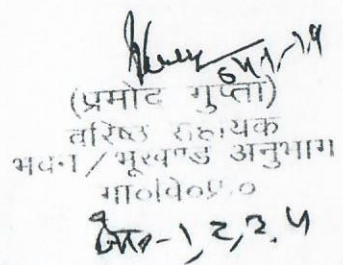 (प्रमोद गुप्ता)
वरिष्ठ सहायक
भवन/भूखण्ड अनुभाग
गा०वि०प्रा०
-1,2,3,4